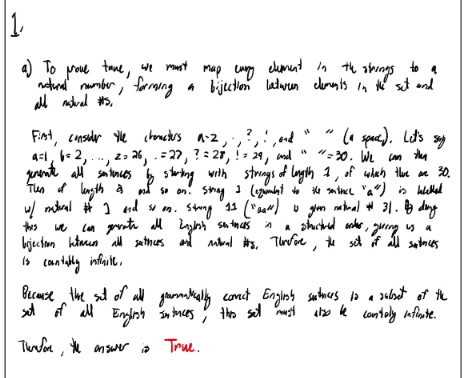 1.
a) To prove true, we must map every element in the strings to a
natural number, forming a bijection between elements in the set and
all natural #s.
First, consider the characters a-z, ., ?, !, and " " (a space). Let's say
a=1, b=2, ..., z=26, .=27, ?=28, !=29, and " "=30. We can then
generate all sentences by starting with strings of length 1, of which there are 30.
Then of length 2 and so on. String 1 (equivalent to the sentence "a") is labelled
w/ natural # 1 and so on. String 11 ("aa") is given natural # 31. By doing
this we can generate all English sentences in a structured order, giving us a
bijection between all sentences and natural #s. Therefore, the set of all sentences
is countably infinite.
Because the set of all grammatically correct English sentences is a subset of the
set of all English sentences, this set must also be countably infinite.
Therefore, the answer is True.